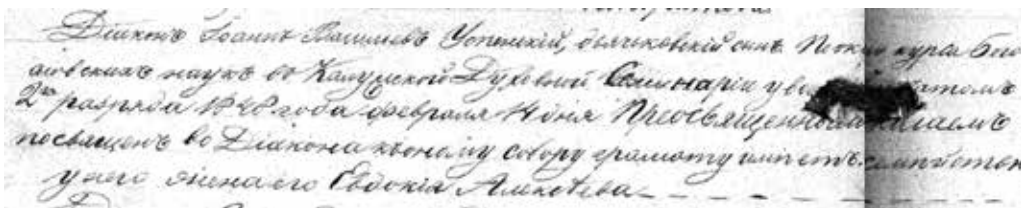 Діаконъ Іоаннъ Васильевъ Успенскій, дьячковскій сынъ. По окон курса Бого
словскихъ наукъ во Калужской Духовной Семинаріи атомъ
2го разряда 1848 года февраля 14 дня Преосвященнымъ Николаемъ
посвященъ во Діакона къ оному собору грамоту имѣетъ. семейство
у него жена его Евдокія Алексѣева